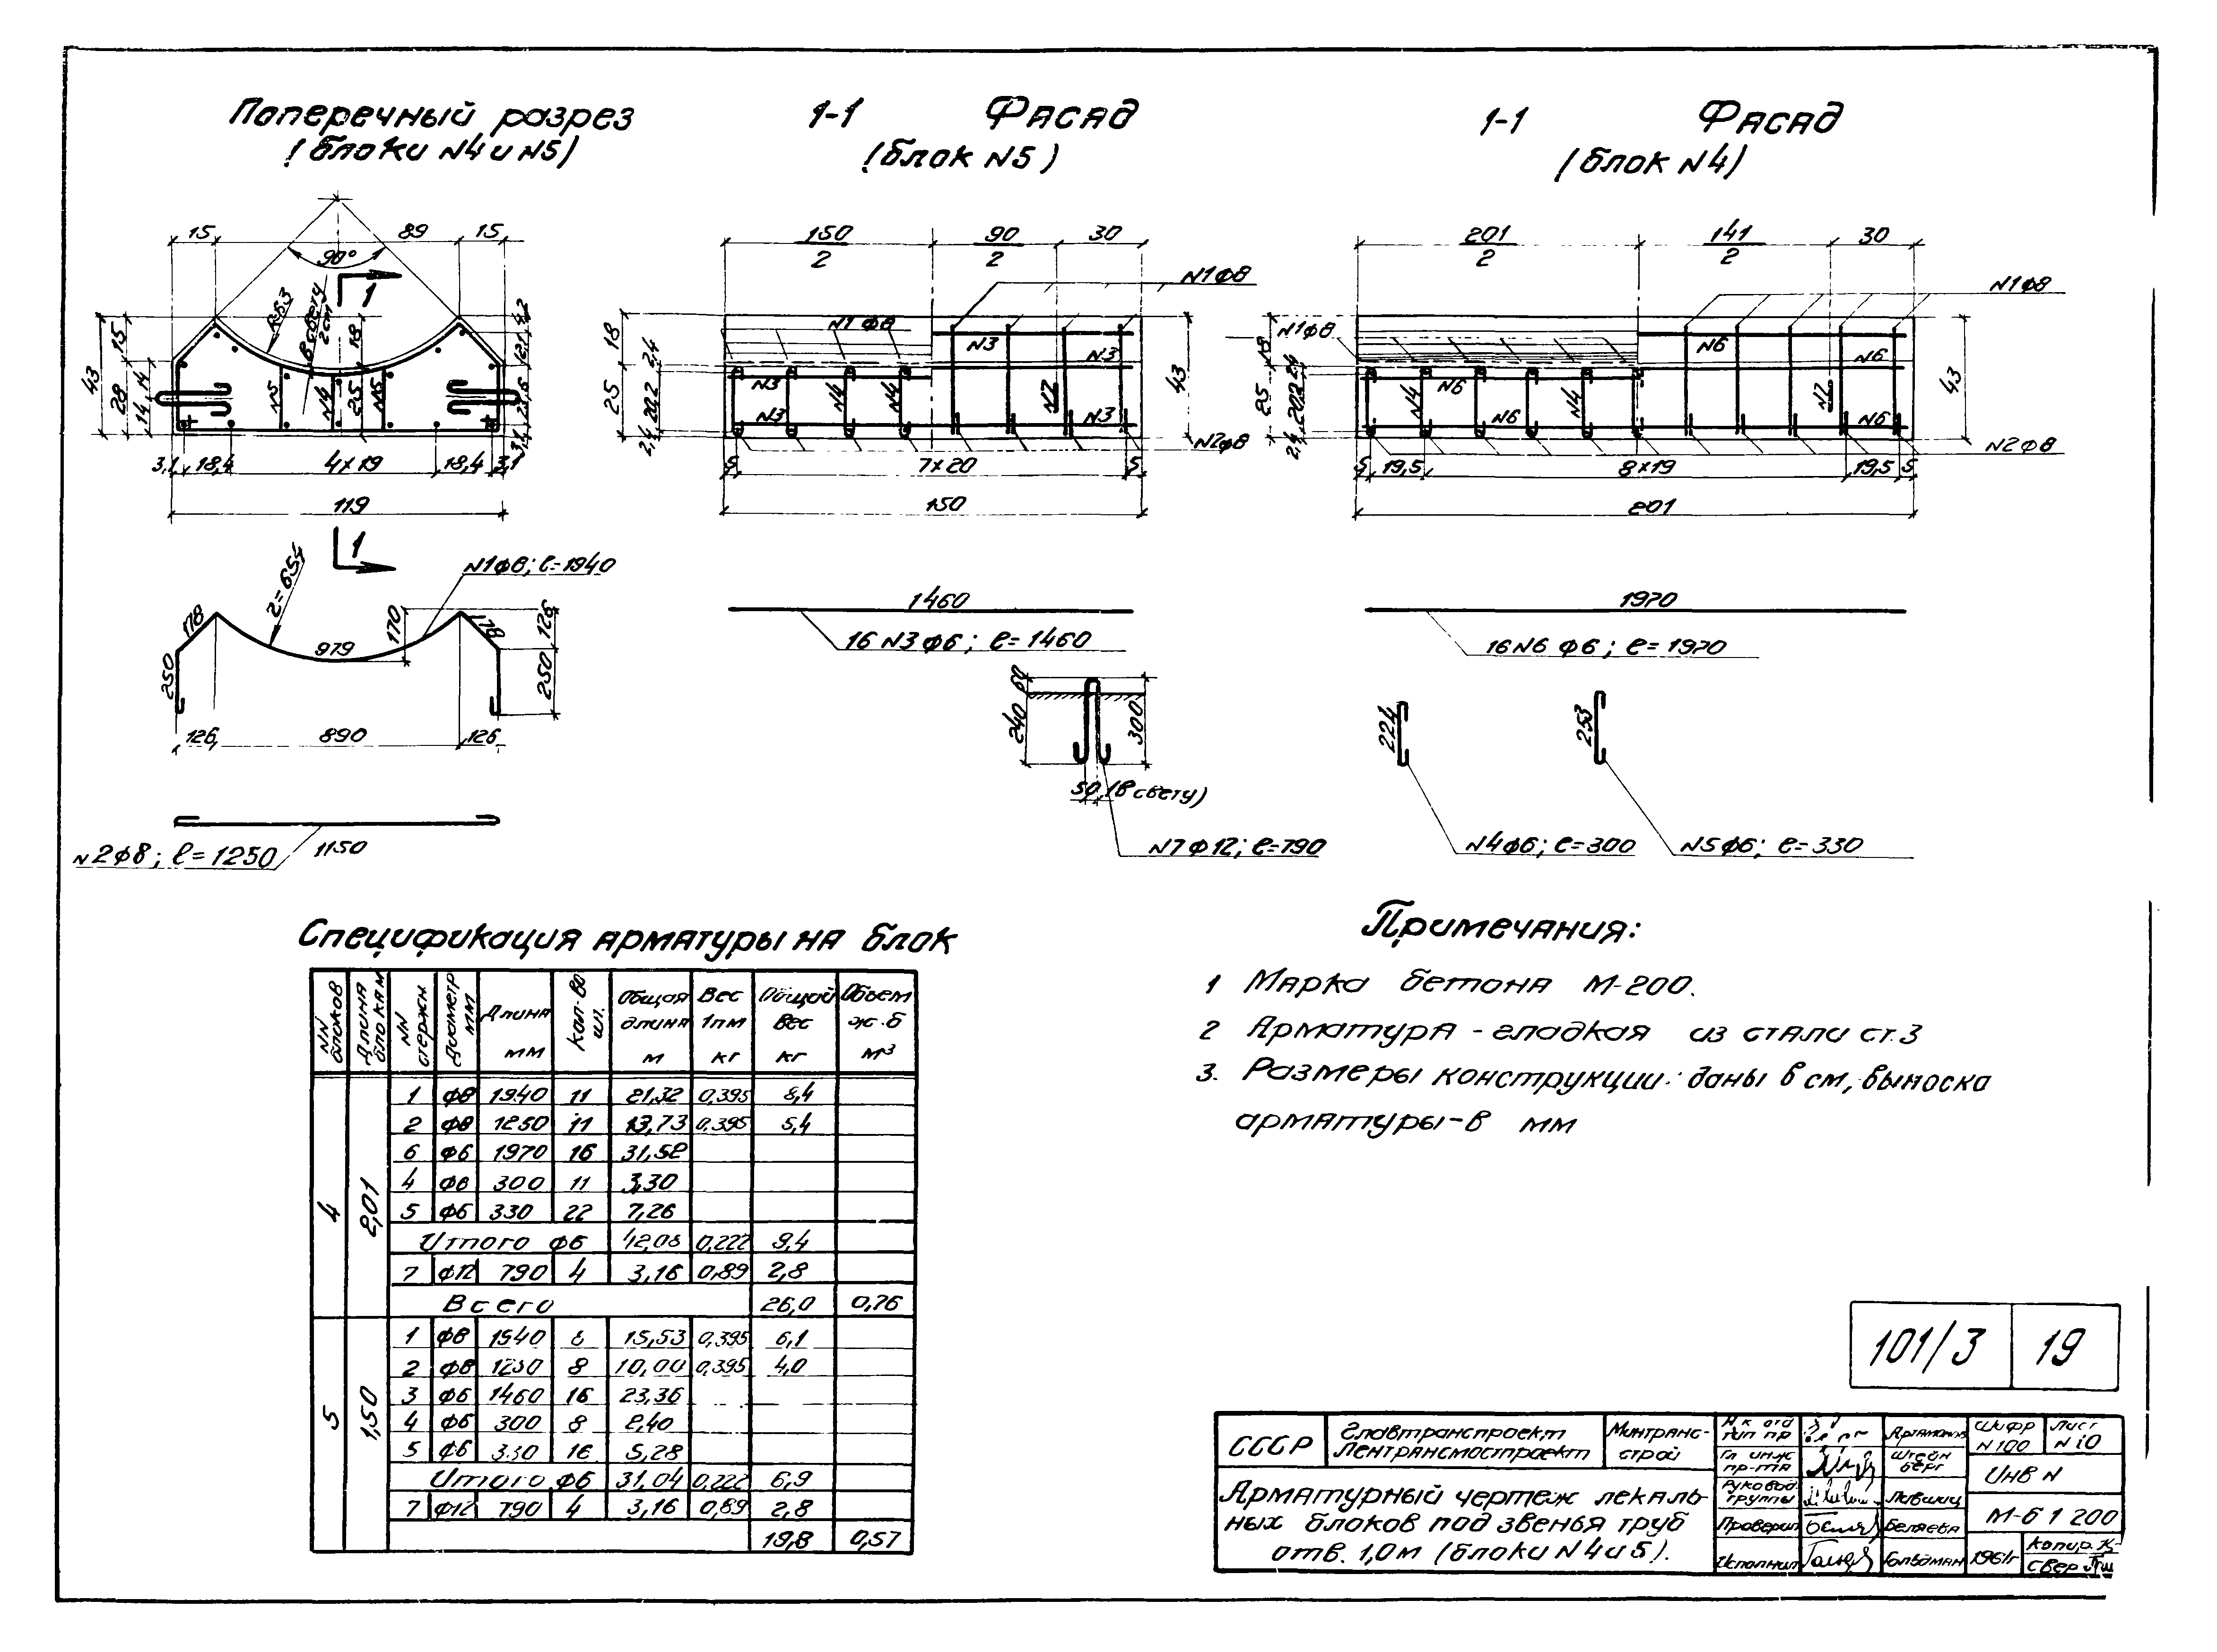 Поперечный разрез
(блоки N4 и N5)
1-1 Фасад
(блок N5)
1-1 Фасад
(блок N4)
15 89 15
90°
R=63
в свету
2 см
1
43
15
28
14
14
18
25
N5 N4 N5
3,1 18,4 4×19 18,4 3,1
119
1
150/2 90/2 30
N1ф8
N1ф8
18
25
2,4
20,2
2,4
N3 N3
N3 N4 N4
N3 N3
N7
43
N2ф8
5 7×20 5
150
201/2 141/2 30
N1ф8
N1ф8
18
25
N6 N6
N4 N6 N4
N6 N6
N7
43
N2ф8
5 19,5 8×19 19,5 5
201
N1ф8; ℓ=1940
178
979
170
178
126
250
250
126 890 126
N2ф8; ℓ=1250
1150
1460
16 N3 ф6; ℓ=1460
1970
16 N6 ф6; ℓ=1970
60
240
300
50 (в свету)
N7ф12; ℓ=790
224
N4ф6; ℓ=300
253
N5ф6; ℓ=330
Спецификация арматуры на блок
NN блоков | Длина блока м | NN стержн | Диаметр мм | Длина мм | Кол-во шт. | Общая длина м | Вес 1пм кг | Общий вес кг | Объем ж.б м³
4 | 2,01
1 ф8 1940 11 21,32 0,395 8,4
2 ф8 1250 11 13,73 0,395 5,4
6 ф6 1970 16 31,52
4 ф6 300 11 3,30
5 ф6 330 22 7,26
Итого ф6 42,08 0,222 9,4
7 ф12 790 4 3,16 0,89 2,8
Всего 26,0 0,76
5 | 1,50
1 ф8 1940 8 15,53 0,395 6,1
2 ф8 1250 8 10,00 0,395 4,0
3 ф6 1460 16 23,36
4 ф6 300 8 2,40
5 ф6 330 16 5,28
Итого ф6 31,04 0,222 6,9
7 ф12 790 4 3,16 0,89 2,8
19,8 0,57
Примечания:
1 Марка бетона М-200.
2 Арматура - гладкая из стали ст.3
3. Размеры конструкции даны в см, выноска
арматуры-в мм
101/3 19
СССР
Главтранспроект
Лентрансмостпроект
Минтранс-
строй
Арматурный чертеж лекаль-
ных блоков под звенья труб
отв. 1,0м (блоки N4 и 5).
Гл инж
пр-та
Штейн
берг
Руковод.
группы
Проверил
Беляева
Исполнил
Гольдман
Шифр
N100
Лист
N10
Инв N
М-б 1:200
1961г
Копир.
Свер